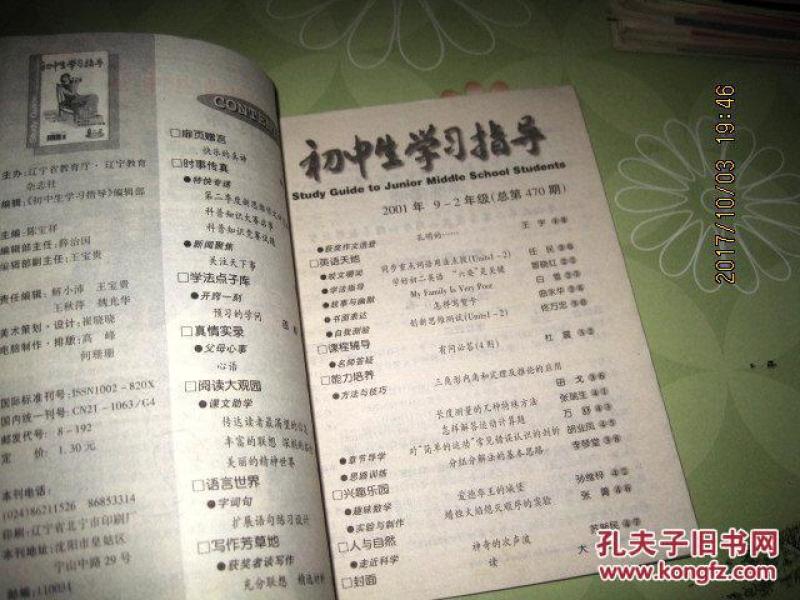 初中生学习指导
主办：辽宁省教育厅·辽宁教育
杂志社
编辑：《初中生学习指导》编辑部
主编：陈宝祥
编辑部主任：薛治国
编辑部副主任：王宝贵
责任编辑：解小沛 王宝贵
王秋萍 姚允华
美术策划·设计：崔晓晓
电脑制作·排版：高 峰
何珊珊
国际标准刊号：ISSN1002-820X
国内统一刊号：CN21-1063/G4
邮发代号：8-192
定 价：1.30元
本刊电话：
(024)86211526 86853314
印刷：辽宁省北宁市印刷厂
本刊地址：沈阳市皇姑区
宁山中路29号
邮编：110034
CONTENT
□扉页赠言
快乐的真谛
□时事传真
●特快专递
科普知识大赛启事
科普知识竞赛试题
●新闻聚焦
关注天下事
□学法点子库
●开窍一刻
预习的学问
□真情实录
●父母心事
心语
□阅读大观园
●课文助学
传达读者最渴望的信息
丰富的联想
美丽的精神世界
□语言世界
●字词句
扩展语句练习设计
□写作芳草地
●获奖者谈写作
充分联想 精选材料
初中生学习指导
Study Guide to Junior Middle School Students
2001年 9-2年级(总第470期)
●获奖作文选登
王宇
□英语天地
●咬文嚼字 同步重点词语用法点拨(Units1-2) 任民
●学法指导 学好初二英语 “六要”是关键
●故事与幽默 My Family Is Very Poor 白雪
●书面表达 怎样写贺卡
●自我测验 创新思维测试(Units1-2)
□课程辅导
●名师答疑 有问必答(4则) 杜震
□能力培养
●方法与技巧 三角形内角和定理及推论的应用
田戈
长度测量的几种特殊方法
怎样解答运动计算题 万舒
●章节导学 对“简单的运动”常见错误认识的剖析 胡业凤
●思路训练 分组分解法的基本思路 李琴堂
□兴趣乐园
●趣味数学 爱德华王的城堡
●实验与制作 蜡烛火焰熄灭顺序的实验 张菁
□人与自然
●走近科学 神奇的次声波
□封面
2017/10/03 19:46
孔夫子旧书网
www.kongfz.com